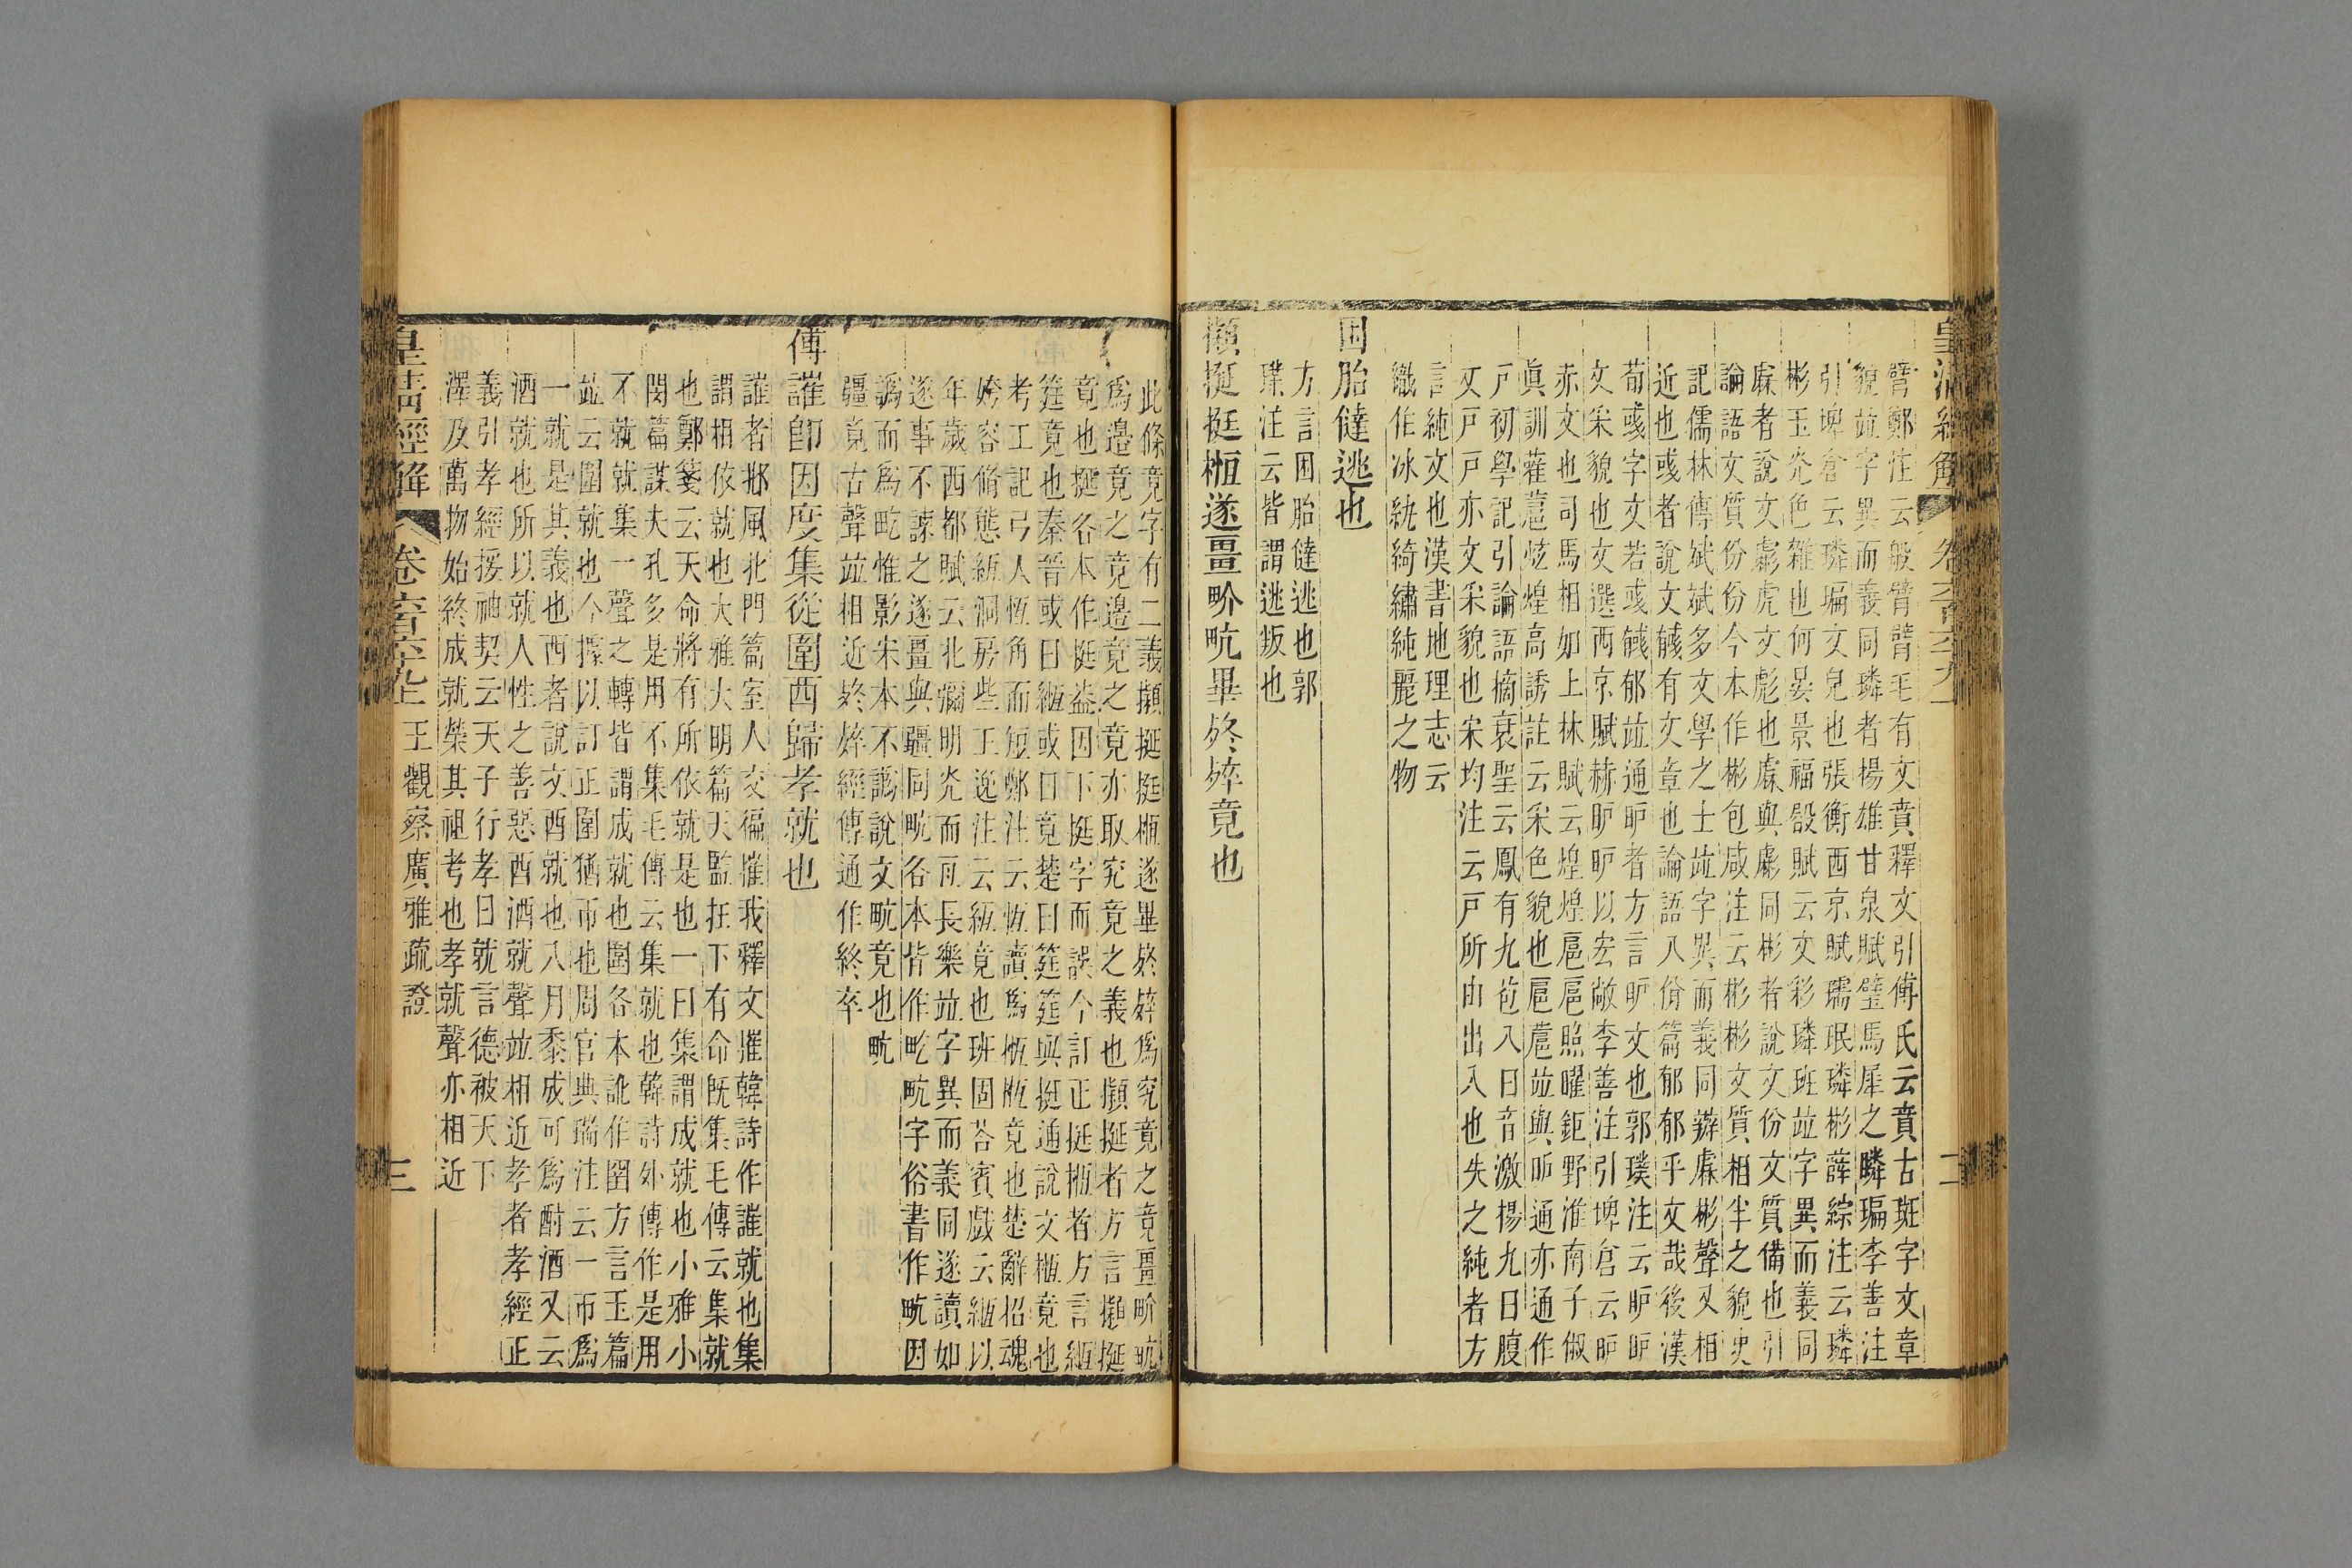 臂鄭注云般臂臂毛有文賁釋文引傅氏云賁古斑字文章
貌竝字異而義同璘者楊雄甘泉賦璧馬犀之瞵㻞李善注
引埤倉云璘㻞文皃也張衡西京賦瑌珉璘彬薛綜注云璘
彬玉光色雜也何晏景福殿賦云文彩璘班竝字異而義同
虨者說文虨虎文彪也虨與彪同彬者說文份文質備也引
論語文質份份今本作彬包咸注云彬彬文質相半之貌史
記儒林傳斌斌多文學之士竝字異而義同辬虨彬聲又相
近也彧者說文𢒰有文章也論語八佾篇郁郁乎文哉後漢
荀彧字文若彧𢒰郁竝通㫚者方言㫚文也郭璞注云㫚㫚
文采貌也文選西京賦赫㫚㫚以宏敞李善注引埤倉云㫚
赤文也司馬相如上林賦云煌煌扈扈照曜鉅野淮南子俶
眞訓雚蔰炫煌高誘註云采色貌也扈蔰竝與㫚通亦通作
戸初學記引論語摘衰聖云鳳有九苞八曰音激揚九曰腹
文戸戸亦文采貌也宋均注云戸所由出入也失之純者方
言純文也漢書地理志云
織作冰紈綺繡純麗之物
困胎㒓逃也
方言困胎㒓逃也郭
璞注云皆謂逃叛也
攋挻挺㮓遂畺畍畂畢終㷶竟也
皇清經解 卷六百六十九上 二
此條竟字有二義攋挻挺㮓遂畢終㷶爲究竟之竟畺畍畂
爲邊竟之竟邊竟之竟亦取究竟之義也攋挻者方言攋挻
竟也挻各本作挺葢因下挺字而誤今訂正挺㮓者方言緪
筳竟也秦晉或曰緪或曰竟楚曰筳筳與挺通說文㮓竟也
考工記弓人恆角而短鄭注云恆讀爲㮓㮓竟也楚辭招魂
姱容脩態緪洞房些王逸注云緪竟也班固荅賓戲云緪以
年歲西都賦云北彌明光而亙長樂竝字異而義同遂讀如
遂事不諫之遂畺與疆同畂各本皆作畂畂字俗書作畂因
譌而爲畂惟影宋本不譌說文畂竟也畂
疆竟古聲竝相近終㷶經傳通作終卒
傅䜅卽因度集從圍酉歸孝就也
䜅者邶風北門篇室人交徧摧我釋文摧韓詩作䜅就也集
謂相依就也大雅大明篇天監在下有命旣集毛傳云集就
也鄭箋云天命將有所依就是也一曰集謂成就也小雅小
閔篇謀夫孔多是用不集毛傳云集就也韓詩外傳作是用
不就就集一聲之轉皆謂成就也圍各本訛作圉方言玉篇
竝云圍就也今據以訂正圍猶帀也周官典瑞注云一帀爲
一就是其義也酉者說文酉就也八月黍成可爲酎酒又云
酒就也所以就人性之善惡酉酒就聲竝相近孝者孝經正
義引孝經援神契云天子行孝曰就言德被天下
澤及萬物始終成就榮其祖考也孝就聲亦相近
皇清經解 卷六百六十九上 王觀察廣雅疏證 三